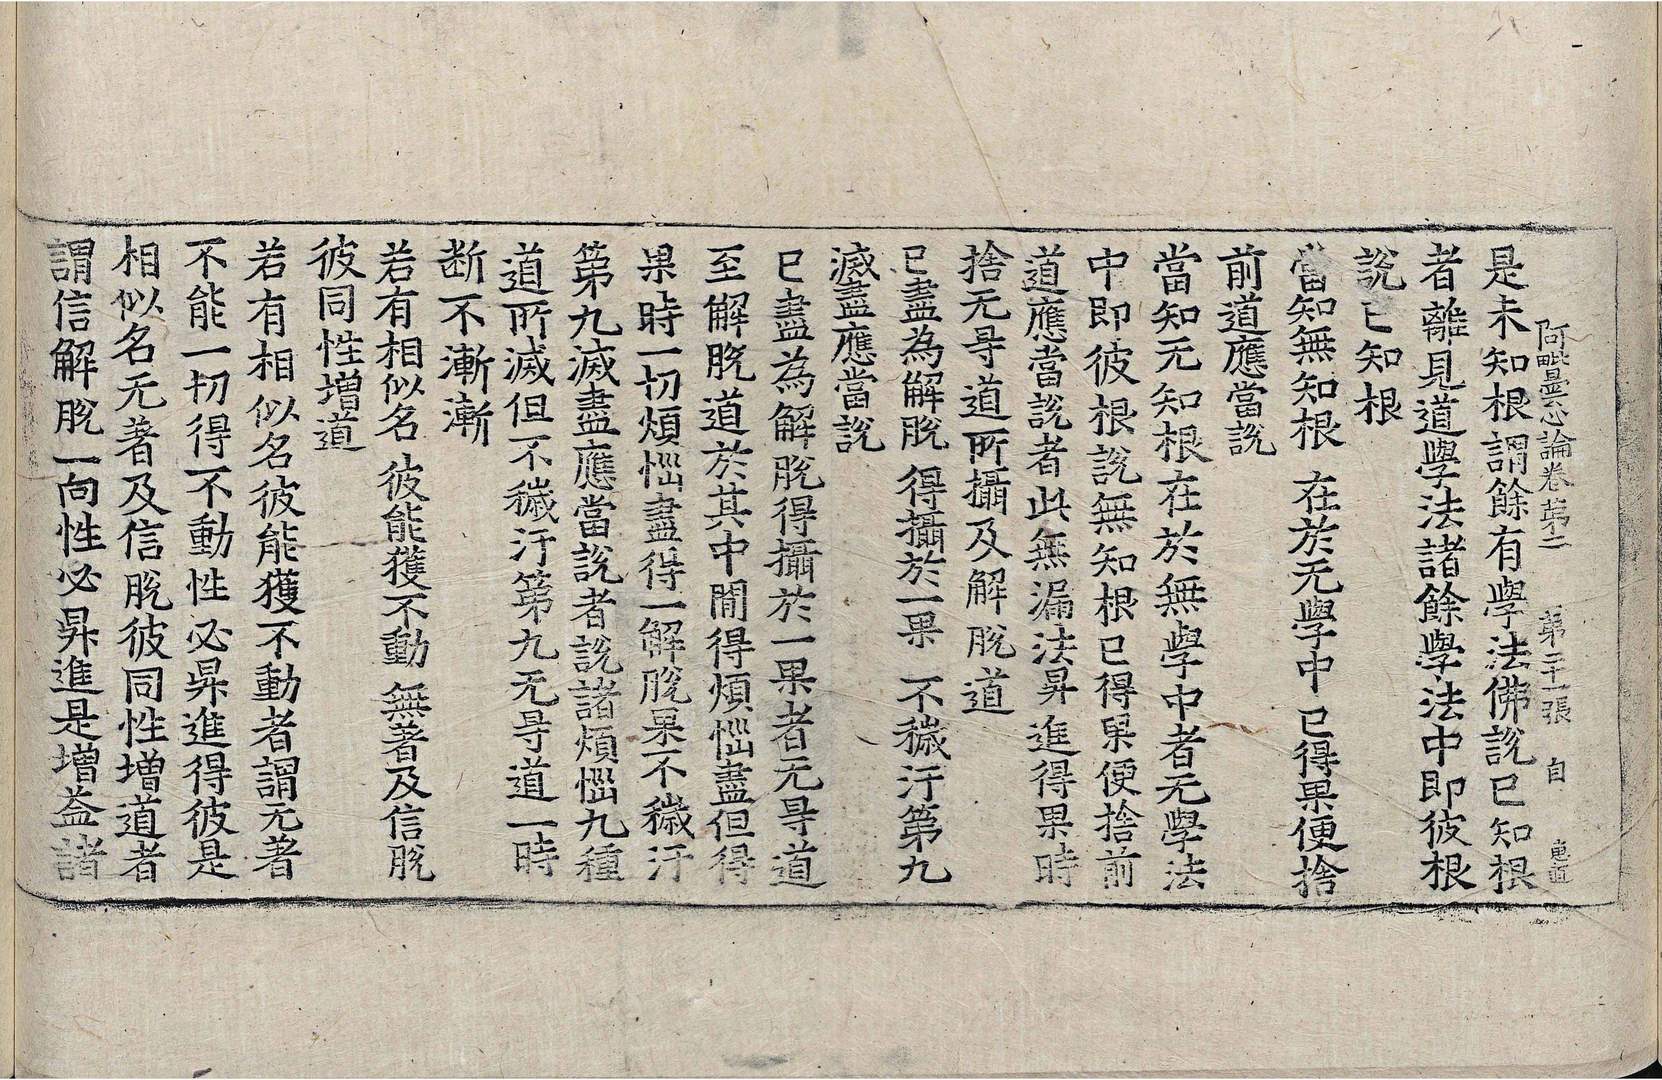 阿毗曇心論卷第二 第二十一張 自
是未知根謂餘有學法佛說已知根
者離見道學法諸餘學法中即彼根
說已知根
當知無知根 在於无學中 已得果便捨
前道應當說
當知无知根在於無學中者无學法
中即彼根說無知根已得果便捨前
道應當說者此無漏法昇進得果時
捨无㝵道所攝及解脫道
已盡為解脫 得攝於一果 不穢汙第九
滅盡應當說
已盡為解脫得攝於一果者无㝵道
至解脫道於其中間得煩惱盡但得
果時一切煩惱盡得一解脫果不穢汙
第九滅盡應當說者說諸煩惱九種
道所滅但不穢汙第九无㝵道一時
断不漸漸
若有相似名 彼能獲不動 無著及信脫
彼同性增道
若有相似名彼能獲不動者謂无著
不能一切得不動性必昇進得彼是
相似名无著及信脫彼同性增道者
謂信解脫一向性必昇進是增益諸